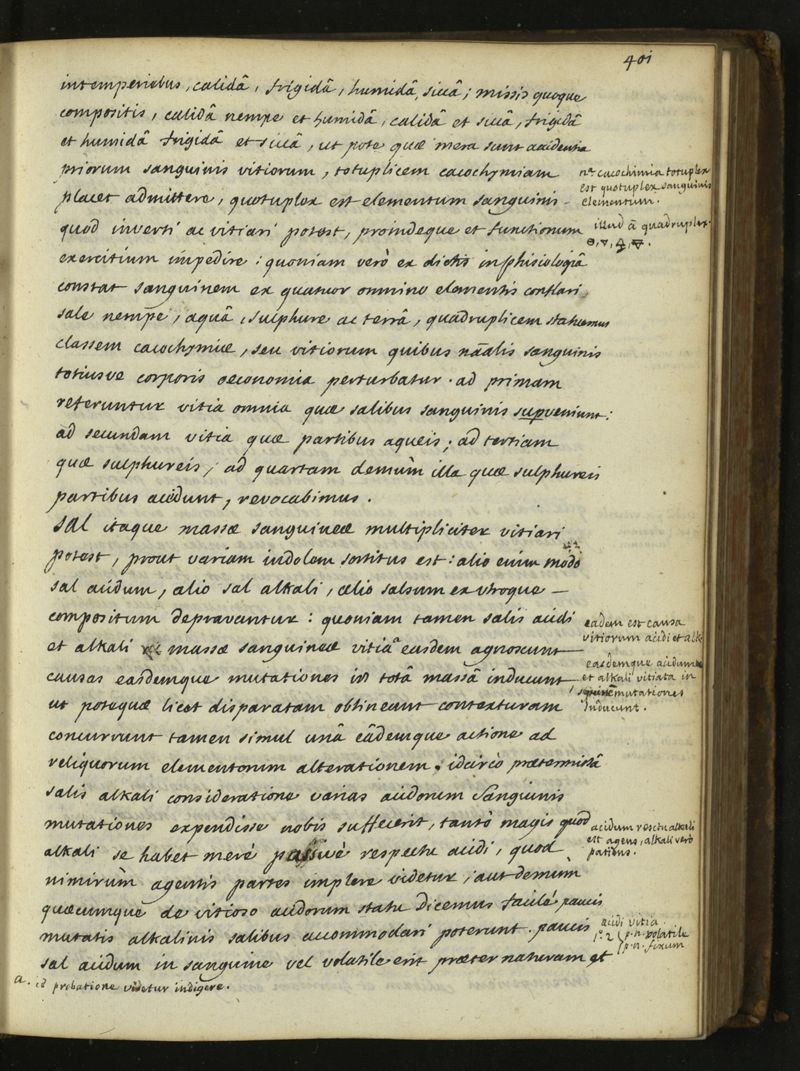 401
intemperiebus, calidâ, frigidâ, humidâ, siccâ; missis quoque
compositis, calidâ nempe et humidâ, calidâ et siccâ, frigidâ
et humidâ frigidâ et siccâ, ut pote quæ mera sunt accidentia
priorum sanguinis vitiorum, totuplicem cacochymiam
placet admittere, quotuplex est elementum sanguinis
quod inverti ac vitiari potest, proindeque et functionum
exercitium impedire: quoniam verò ex dictis in phisiologiâ
constat sanguinem ex quatuor omnino elementis conflari,
sale nempe, aquâ, sulphure ac terrâ, quadruplicem statuemus
classem cacochymiæ, seu vitiorum quibus nãalis sanguinis
totiusve corporis œconomia perturbatur. ad primam
referuntur vitia omnia quæ salibus sanguinis superveniunt:
ad secundam vitia quæ partibus aqueis; ad tertiam
quæ sulphureis, ad quartam demùm illa quæ sulphureis
partibus accidunt, revocabimus.
Sal itaque massæ sanguineæ multipliciter vitiari
potest, prout variam indolem sortitus est: alio enim modo
sal acidum, alio sal alkali, alio salsum ex utroque
compositum depravantur: quoniam tamen salis acidi
et alkali massæ sanguineæ vitia a easdem agnoscunt
causas easdemque mutationes in totâ massâ inducunt,
ut potequæ licet disparatam obtineant contexturam
concurrunt tamen simul unâ eâdemque actione ad
reliquorum elementorum alterationem. idcircò prætermissâ
salis alkali consideratione varias acidorum sanguinis
mutationes expendisse nobis suffecerit, tantò magis quod
alkali se habet merè passivè respectu acidi, quod
nimirùm agentis partes implere videtur, aut demùm
quæcumque de vitioso acidorum statu dicemus facilè paucis
mutatis alkalinis salibus accommodari poterunt. paucis
sal acidum in sanguine vel volatile erit præter naturam et
a. id probatione videtur indigere.
cacochimia totuplex
est quotuplex sanguinis
elementum.
illud quadruplex.
🜔, 🜄, 🜍, 🜃.
eadem est causa
vitiorum acidi et alk
easdemque acidum
et alkali vitiata in
mutationes
inducunt.
acidum respectu alkali
est agens, alkali verò
patiens.
acidi vitia
1º. 2 p. n. volatile
p. n. fixum